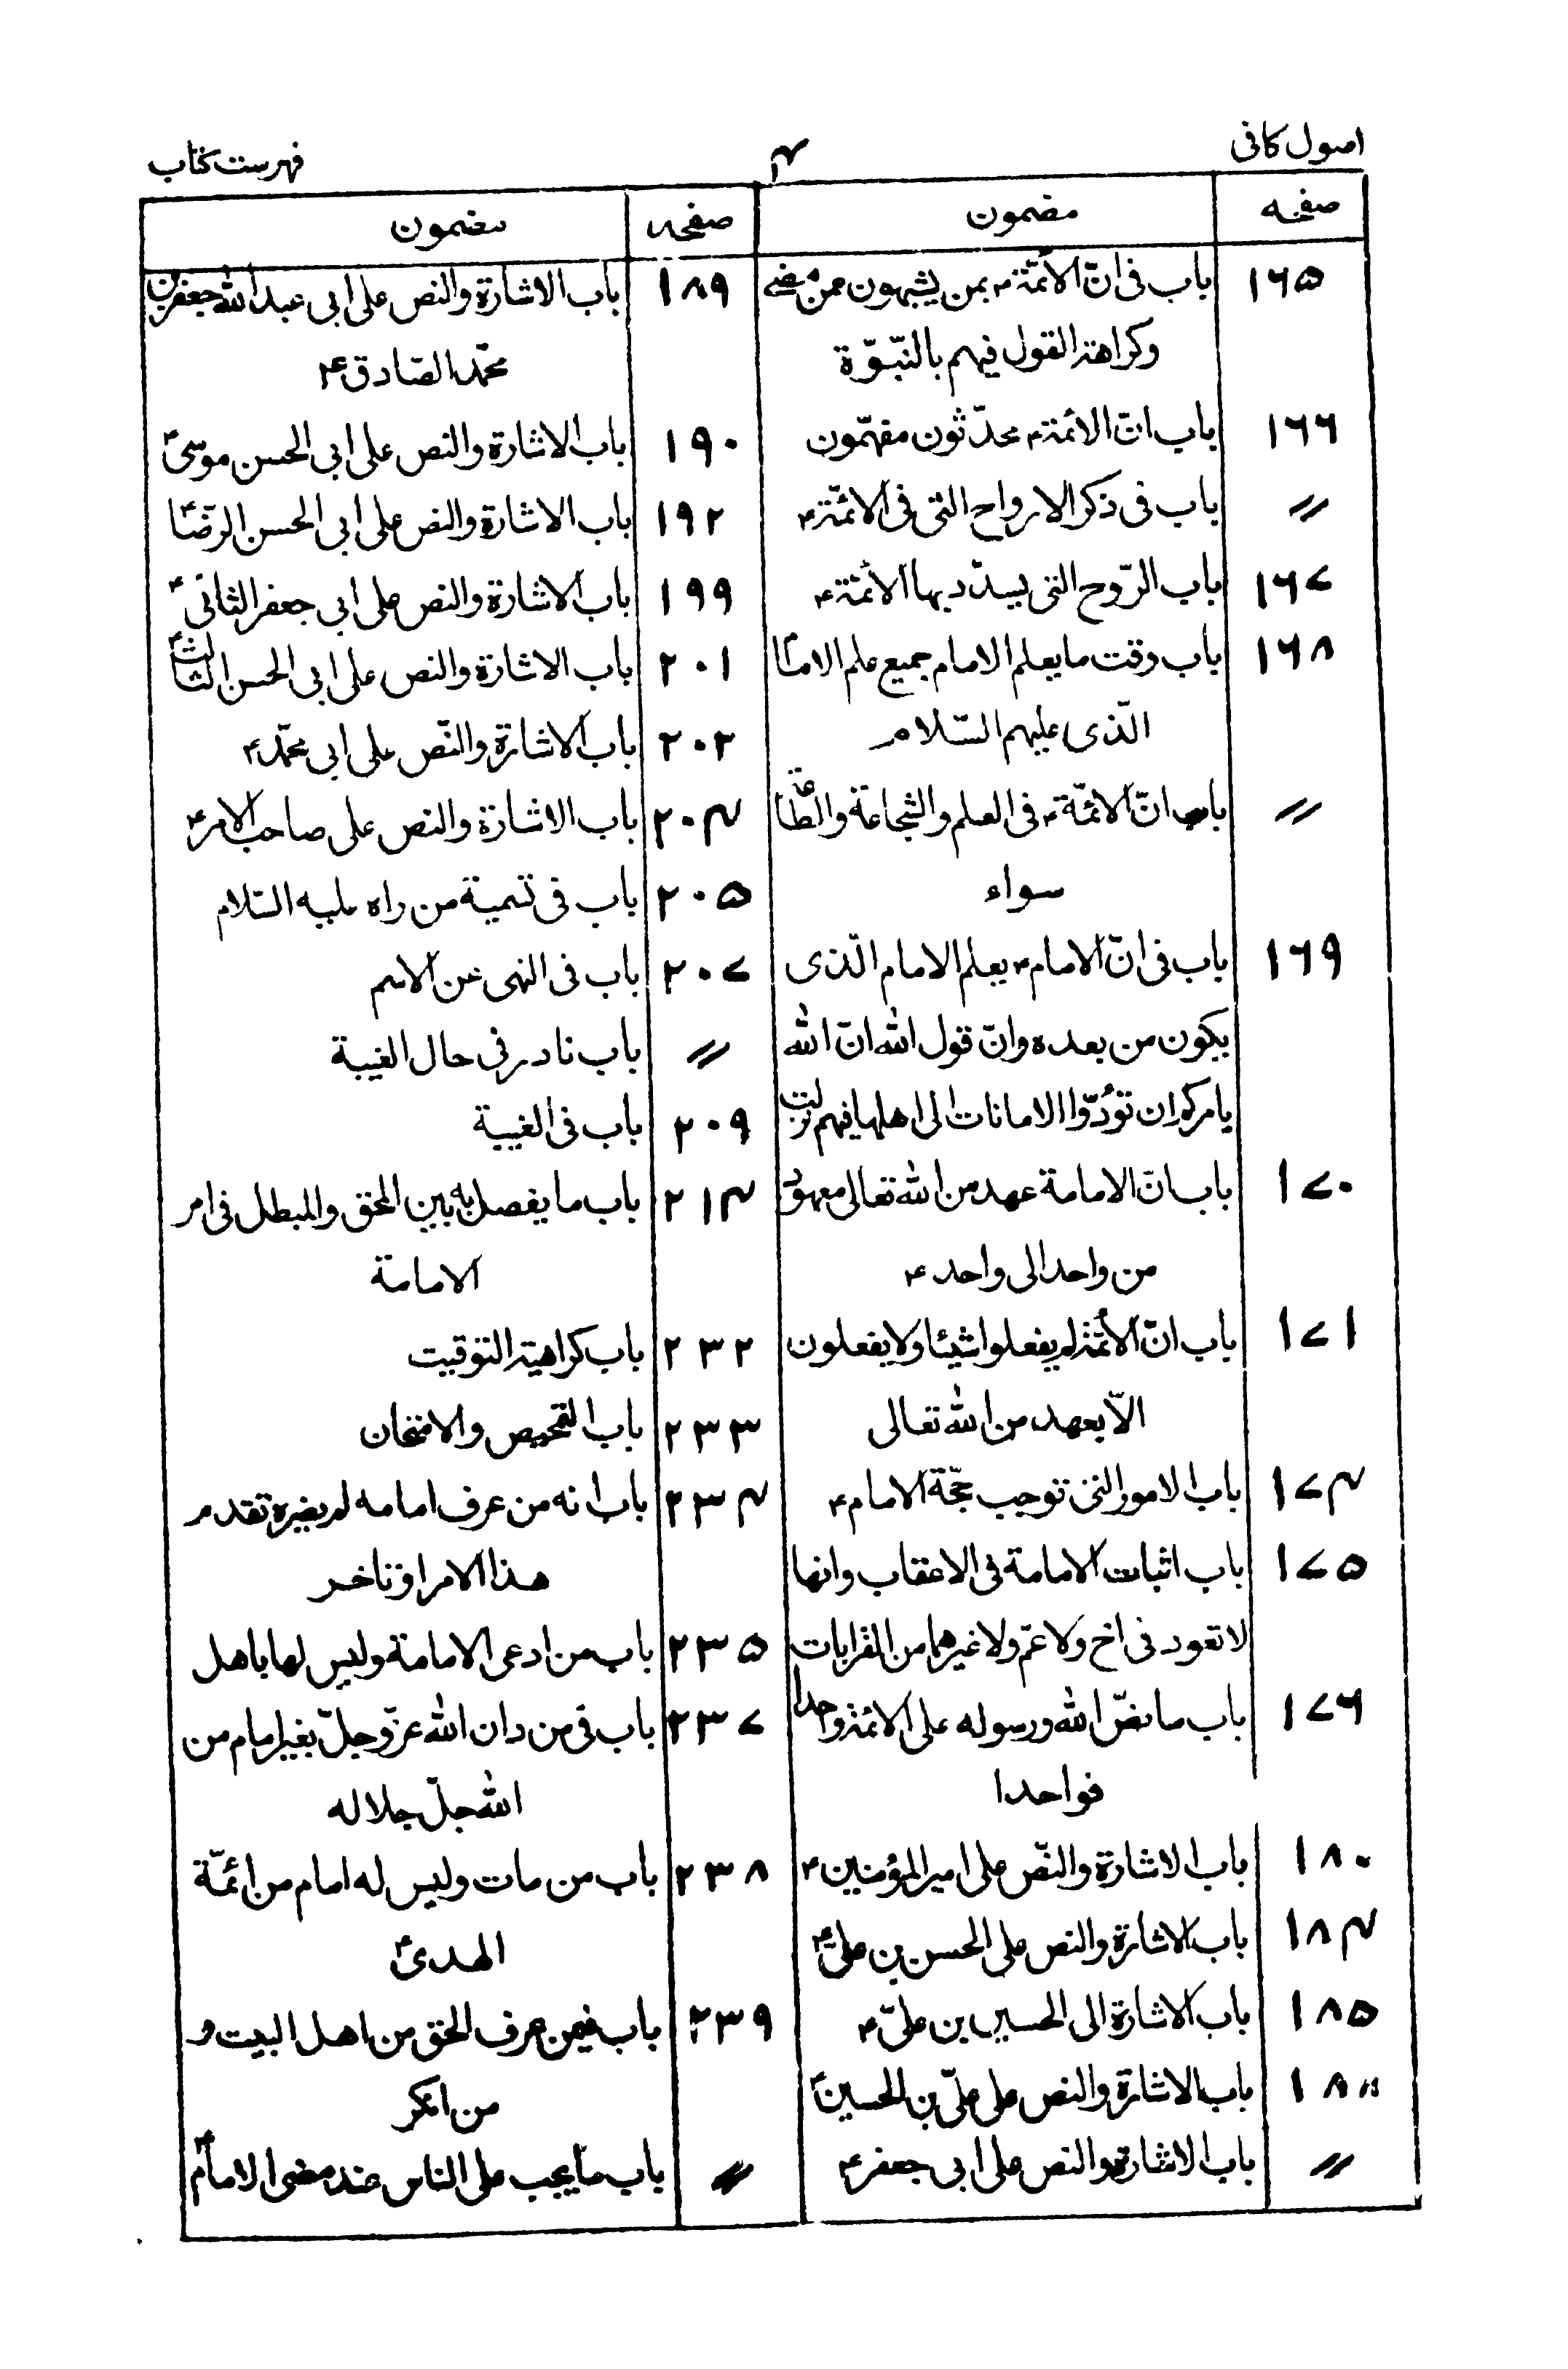 اصول کافی
۴
فہرست کتاب
صفحہ
مضمون
صفحہ
مضمون
۱۶۵ باب فی انّ الأئمّة ؑ بمن یشبهون ممن مضے
وکراهة القول فیهم بالنّبوّة
۱۶۶ باب انّ الائمة ؑ محدّثون مفهّمون
〃 باب فی ذکر الارواح التی فی الائمّة ؑ
۱۶۷ باب الرّوح التی یسدّد بها الأئمّة ؑ
۱۶۸ باب وقت ما یعلم الامام جمیع علم الامام
الّذی علیهم السّلام
〃 باب انّ الائمّة ؑ فی العلم والشجاعة والطّاعة
سواء
۱۶۹ باب فی انّ الامام ؑ یعلم الامام الّذی
یکون من بعده وانّ قول الله انّ الله
یامرکم ان تؤدّوا الامانات الی اهلها فیهم نزلت
۱۷۰ باب انّ الامامة عهد من الله تعالی معهود
من واحد الی واحد ؑ
۱۷۱ باب انّ الأئمة لم یفعلوا شیئا ولا یفعلون
الّا بعهد من الله تعالی
۱۷۴ باب الامور التی توجب حجّة الامام ؑ
۱۷۵ باب اثبات الامامة فی الاعقاب وانها
لا تعود فی اخ ولا عمّ ولا غیرهما من القرابات
۱۷۶ باب ما نصّ الله ورسوله علی الائمة واحدا
فواحدا
۱۸۰ باب الاشارة والنّص علی امیر المؤمنین ؑ
۱۸۴ باب الاشارة والنص علی الحسن بن علیؑ
۱۸۵ باب الاشارة الی الحسین بن علیّ ؑ
۱۸۸ باب الاشارة والنص علی علیّ بن الحسینؑ
〃 باب الاشارة والنص علی ابی جعفر ؑ
۱۸۹ باب الاشارة والنص علی ابی عبد الله جعفر بن
محمّد الصّادق ؑ
۱۹۰ باب الاشارة والنص علی ابی الحسن موسیؑ
۱۹۲ باب الاشارة والنص علی ابی الحسن الرّضاؑ
۱۹۹ باب الاشارة والنص علی ابی جعفر الثانی ؑ
۲۰۱ باب الاشارة والنص علی ابی الحسن الثالثؑ
۲۰۲ باب الاشارة والنّص علی ابی محمّد ؑ
۲۰۴ باب الاشارة والنص علی صاحب الامر ؑ
۲۰۵ باب فی تسمیة من راه علیه السّلام
۲۰۷ باب فی النهی عن الاسم
〃 باب نادر فی حال الغیبة
۲۰۹ باب فی الغیبة
۲۱۴ باب ما یفصل به بین المحق والمبطل فی امر
الامامة
۲۳۲ باب کراهیة التوقیت
۲۳۳ باب التمحیص والامتحان
۲۳۴ باب انه من عرف امامه لم یضره تقدم
هذا الامر او تاخر
۲۳۵ باب من ادعی الامامة ولیس لها باهل
۲۳۷ باب فی من دان الله عزّ وجلّ بغیر امام من
الله جلّ جلاله
۲۳۸ باب من مات ولیس له امام من ائمّة
الهدیؑ
۲۳۹ باب فیمن عرف الحق من اهل البیت و
من انکر
〃 باب ما یجب علی الناس عند مضی الامامؑ